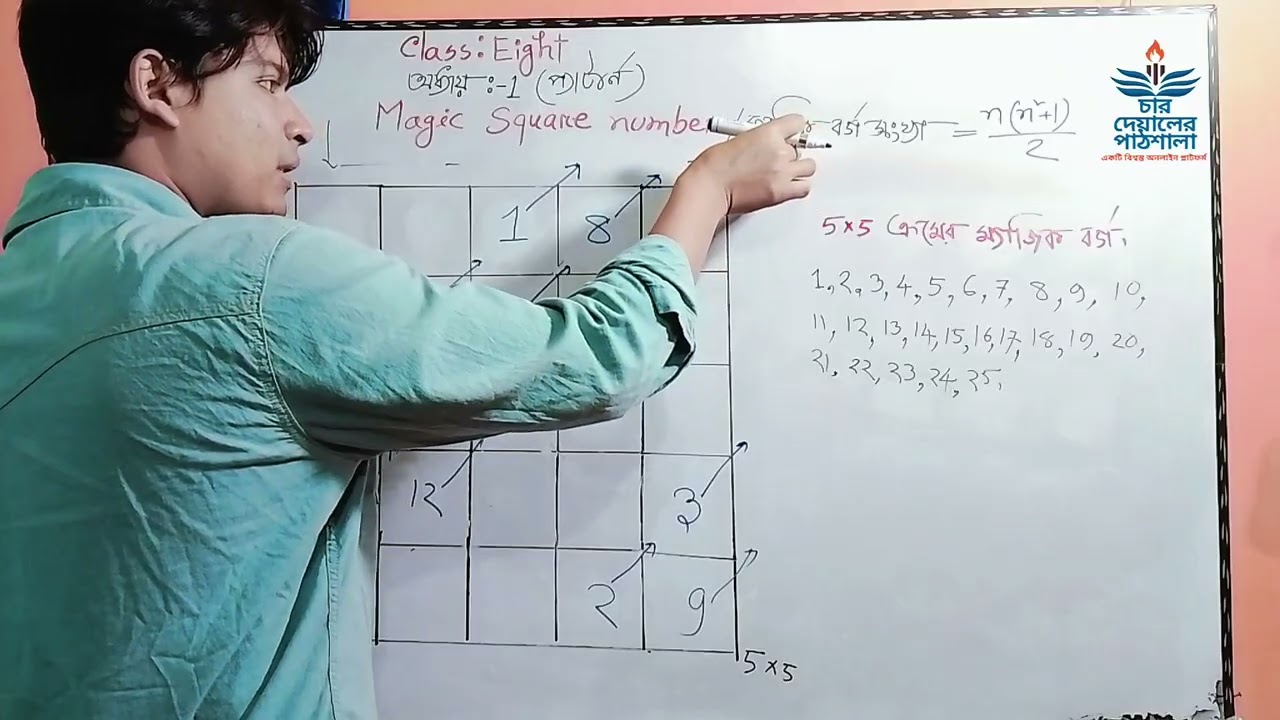 Class: Eight
অধ্যায় :-1 (প্যাটার্ন)
Magic Square number
বর্গ সংখ্যা = n(n²+1)/2
চার
দেয়ালের
পাঠশালা
একটি বিশ্বস্ত অনলাইন প্লাটফর্ম
5×5 ক্রমের ম্যাজিক বর্গ।
1, 2, 3, 4, 5, 6, 7, 8, 9, 10,
11, 12, 13, 14, 15, 16, 17, 18, 19, 20,
21, 22, 23, 24, 25,
1 8
12 3
2 9
5×5